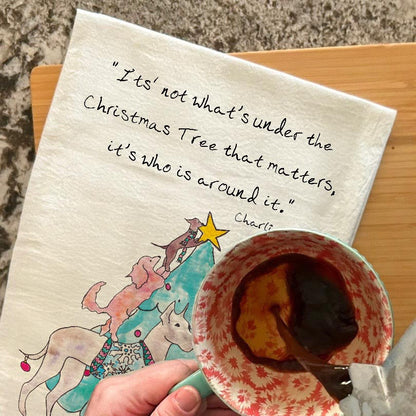 "Its' not what's under the
Christmas Tree that matters,
it's who is around it."